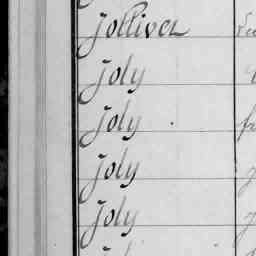 Jolliver
Joly
Joly
Joly
Joly